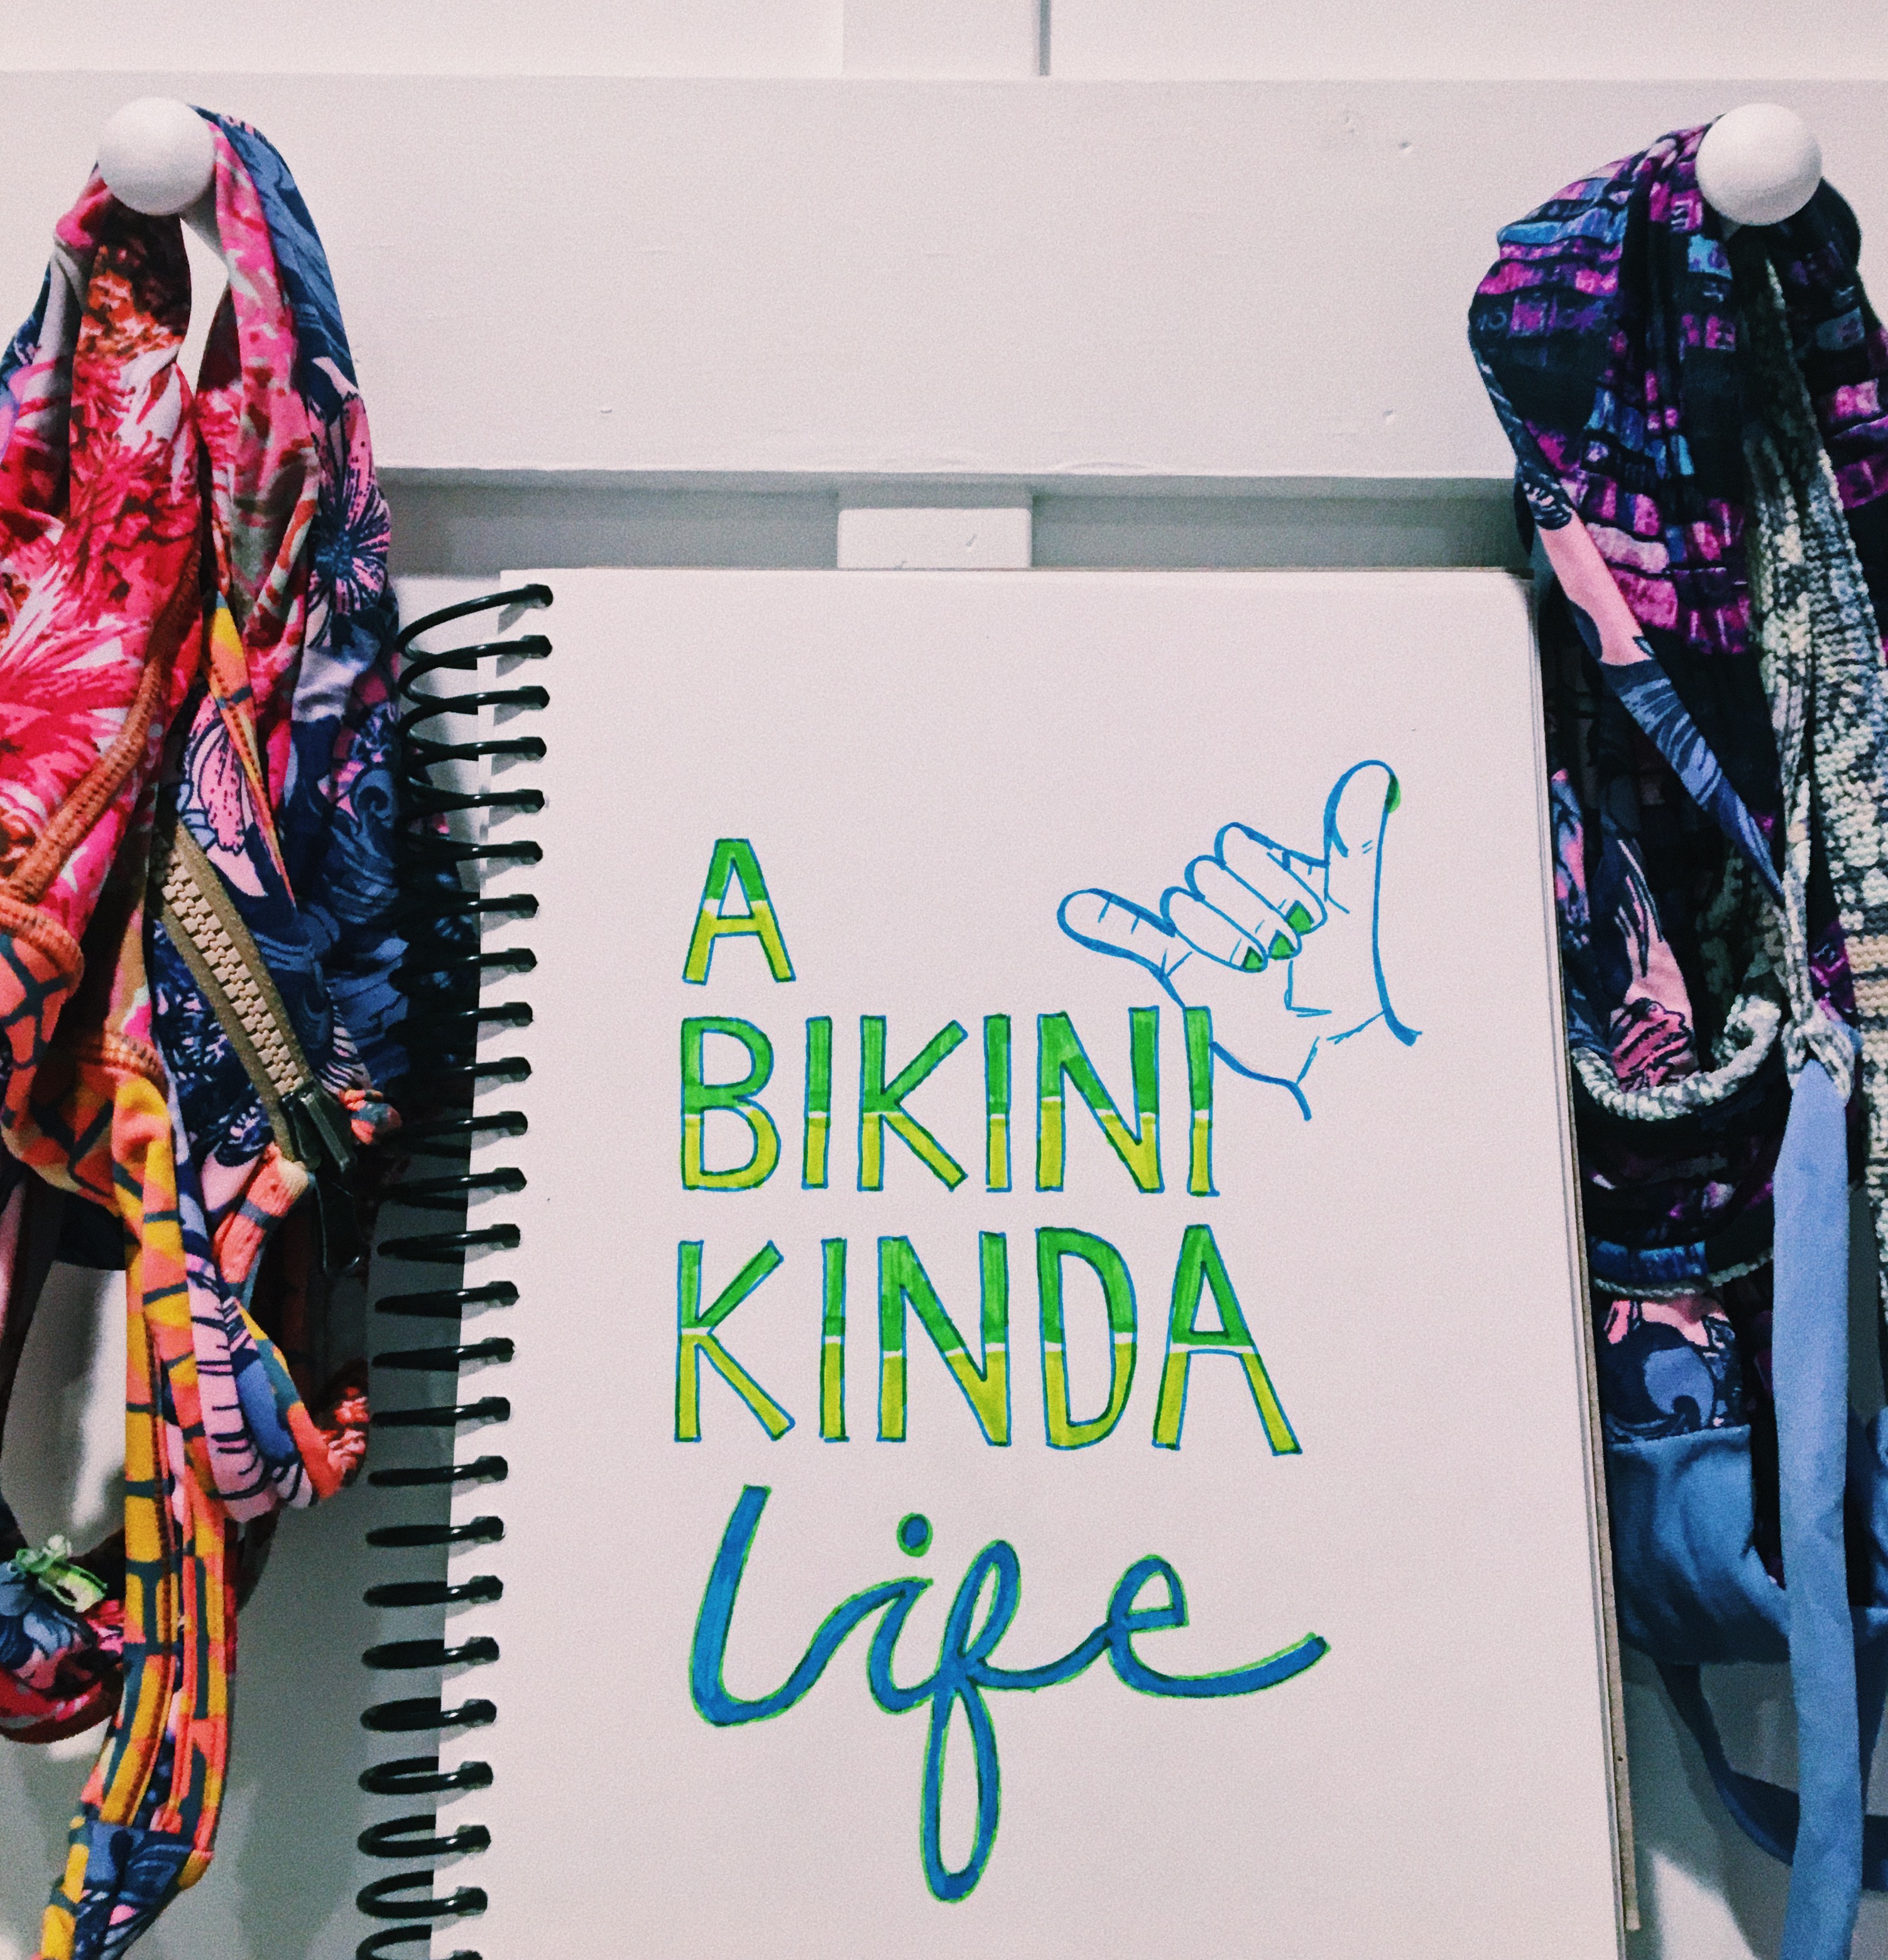 A
BIKINI
KINDA
Life